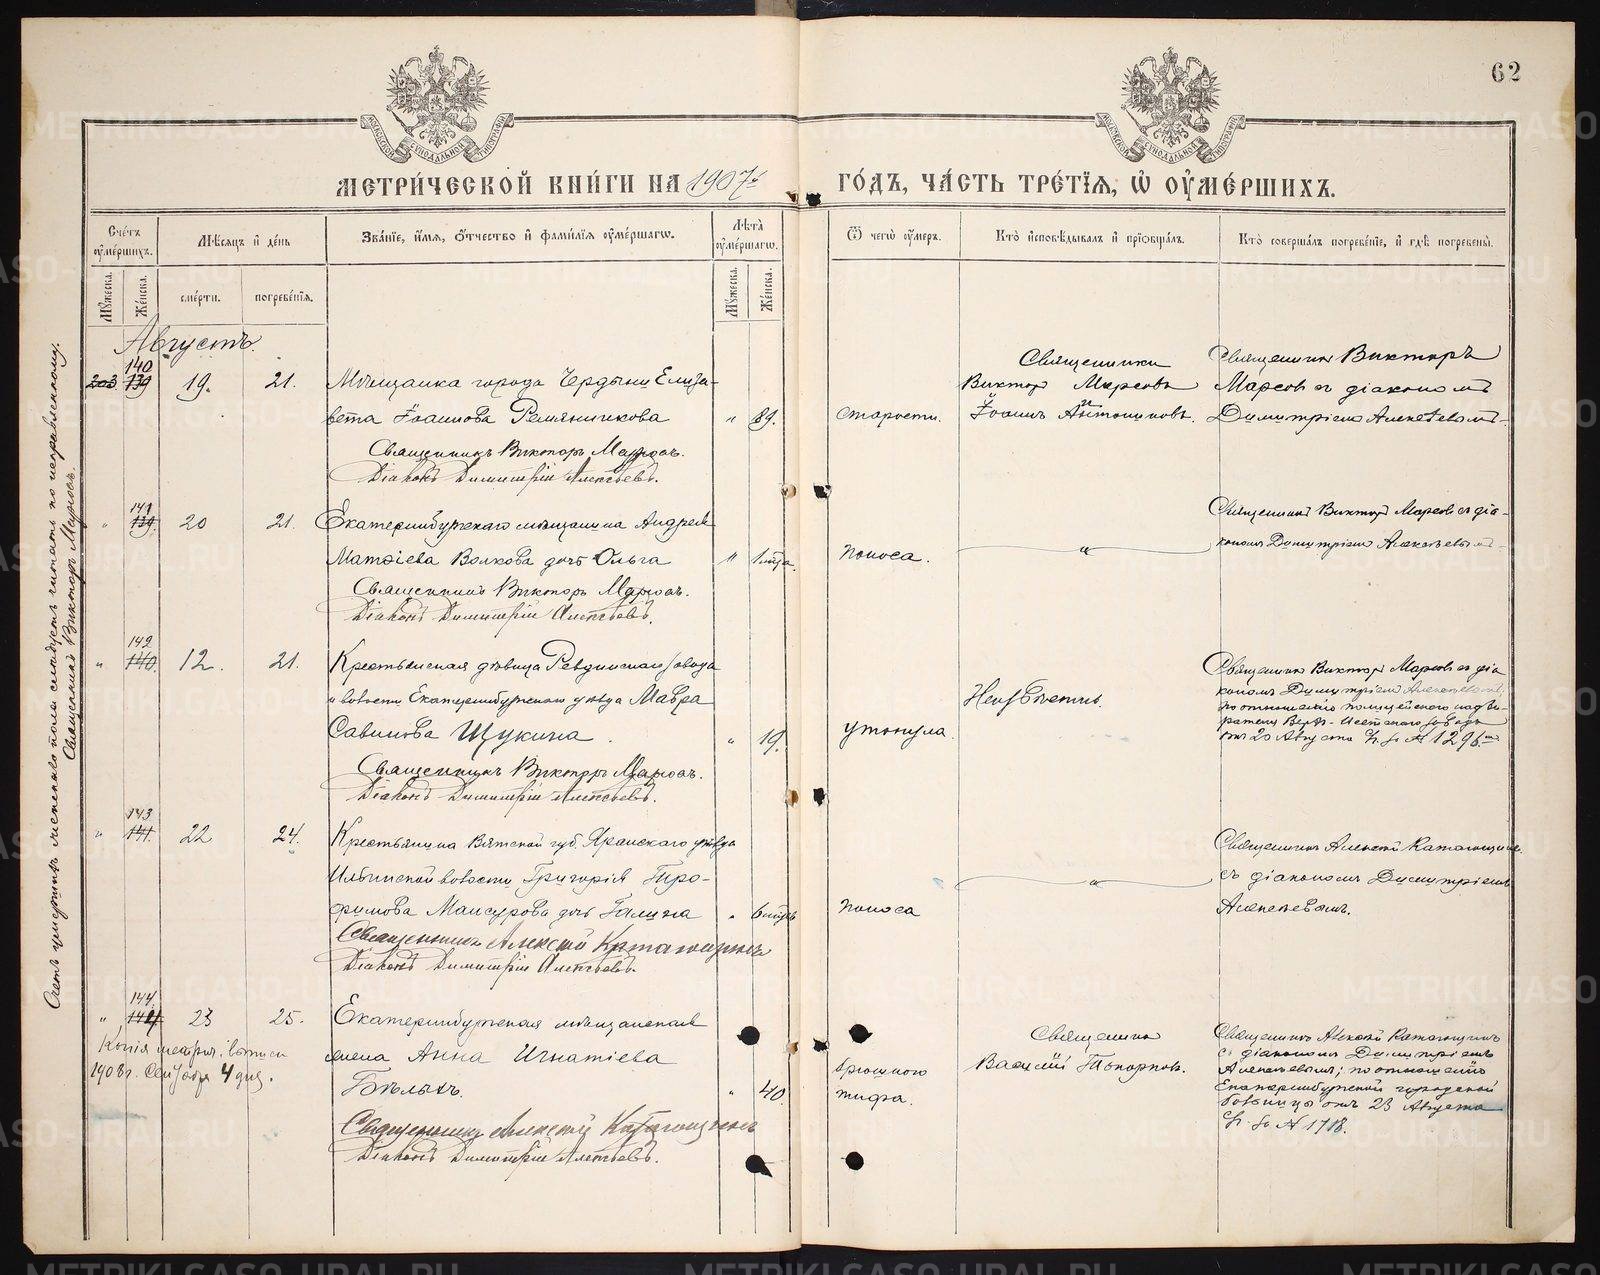 62
МЕТРИ́ЧЕСКОЙ КНИ́ГИ НА 1907й ГО́ДЪ, ЧА́СТЬ ТРЕ́ТІѦ, Ѡ҆ ОУ҆МЕ́РШИХЪ.
Сче́тъ оу҆ме́ршихъ.
Мѣ́сѧцъ и҆ де́нь
Зва́нїе, и҆́мѧ, ѻ҆́тчество и҆ фами́лїѧ оу҆ме́ршагѡ.
Лѣ́та оу҆ме́ршагѡ.
Ѿ чегѡ̀ оу҆́меръ.
Кто̀ и҆сповѣ́дывалъ и҆ прїѡбща́лъ.
Кто̀ соверша́лъ погребе́нїе, и҆ гдѣ̀ погребены̀.
Мꙋ́жеска.
Же́нска.
сме́рти.
погребе́нїѧ.
Мꙋ́жеска.
Же́нска.
Августъ.
140
203 139 19. 21. Мѣщанка города Чердыни Елиза-
вета Іоаннова Ремянникова " 89.
Священникъ Викторъ Марсовъ.
Діаконъ Димитрій Алексѣевъ.
старости.
Священники
Викторъ Марсовъ
Іоаннъ Антониновъ.
Священникъ Викторъ
Марсовъ съ діакономъ
Димитріемъ Алексѣевымъ
141
" 139. 20 21. Екатеринбургскаго мѣщанина Андрея
Матѳіева Волкова дочь Ольга " 1 мца.
Священникъ Викторъ Марсовъ.
Діаконъ Димитрій Алексѣевъ.
поноса.
"
Священникъ Викторъ Марсовъ съ діа-
кономъ Димитріемъ Алексѣевымъ
142
" 140. 12. 21. Крестьянская дѣвица Ревдинскаго завода
и волости Екатеринбургскаго уѣзда Мавра
Савинова Щукина. " 19.
Священникъ Викторъ Марсовъ.
Діаконъ Димитрій Алексѣевъ.
утонула.
Неизвѣстно.
Священникъ Викторъ Марсовъ съ діа
кономъ Димитріемъ Алексѣевымъ,
по отношенію полицейскаго надзи-
рателя Верх-Исетскаго завода
отъ 20 Августа с. г. за № 1296
143
" 141. 22 24. Крестьянина Вятской губ. Яранскаго уѣзда
Ильинской волости Григорія Тро-
фимова Мансурова дочь Галина " 6 мцъ
Священникъ Алексѣй Катагощинъ
Діаконъ Димитрій Алексѣевъ.
поноса
"
Священникъ Алексѣй Катагощинъ
съ діакономъ Димитріемъ
Алексѣевымъ.
144
" 142 23 25. Екатеринбургская мѣщанская
жена Анна Игнатіева
Бѣлыхъ. " 40.
Священникъ Алексѣй Катагощинъ
Діаконъ Димитрій Алексѣевъ.
брюшного
тифа.
Священникъ
Василій Топорковъ.
Священникъ Алексѣй Катагощинъ
съ діакономъ Димитріемъ
Алексѣевымъ; по отношенію
Екатеринбургской городской
больницы отъ 23 Августа
с. г. за № 1718.
Копія метрич. выписи
1908 г. Сентября 4 дня.
Счетъ умершихъ женскаго пола слѣдуетъ читать по исправленному.
Священникъ Викторъ Марсовъ.
METRIKI.GASO-URAL.RU